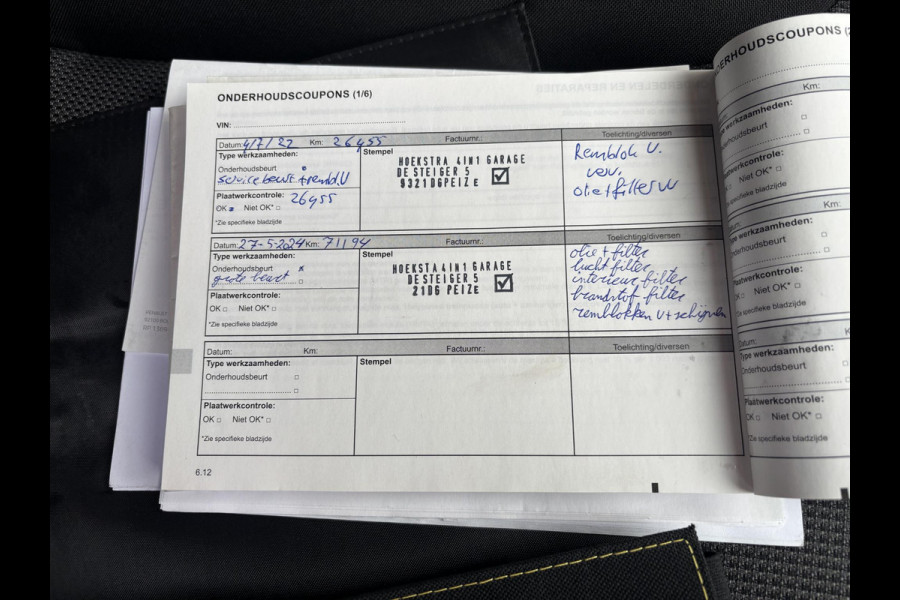 ONDERHOUDSCOUPONS (1/6)
VIN:
Datum: 4/7/22 Km: 26955 Factuurnr.: Toelichting/diversen
Type werkzaamheden:
Onderhoudsbeurt
servicebeurt + rembl V
Plaatwerkcontrole: 26955
OK Niet OK*
*Zie specifieke bladzijde
Stempel
HOEKSTRA 4IN1 GARAGE
DE STEIGER 5
9321DGPEIZE
Remblok V.
verv.
olie+filter
Datum: 27-5-2024 Km: 71194 Factuurnr.: Toelichting/diversen
Type werkzaamheden:
Onderhoudsbeurt
grote beurt
Plaatwerkcontrole:
OK Niet OK*
*Zie specifieke bladzijde
Stempel
HOEKSTA 4IN1 GARAGE
DE STEIGER 5
21DG PEIZE
olie + filter
lucht filter
interieur filter
brandstof filter
remblokken V + schijven
Datum: Km: Factuurnr.: Toelichting/diversen
Type werkzaamheden:
Onderhoudsbeurt
Plaatwerkcontrole:
OK Niet OK*
*Zie specifieke bladzijde
Stempel
6.12
ERHOUDSCOUPONS (2
Km:
werkzaamheden:
houdsbeurt
werkcontrole:
Niet OK*
specifieke bladzijde
Km:
werkzaamheden:
nderhoudsbeurt
Plaatwerkcontrole:
OK Niet OK*
Zie specifieke bladzijde
Datum: Km:
Type werkzaamheden:
Onderhoudsbeurt
Plaatwerkcontrole:
OK Niet OK*
Zie specifieke bladzijde